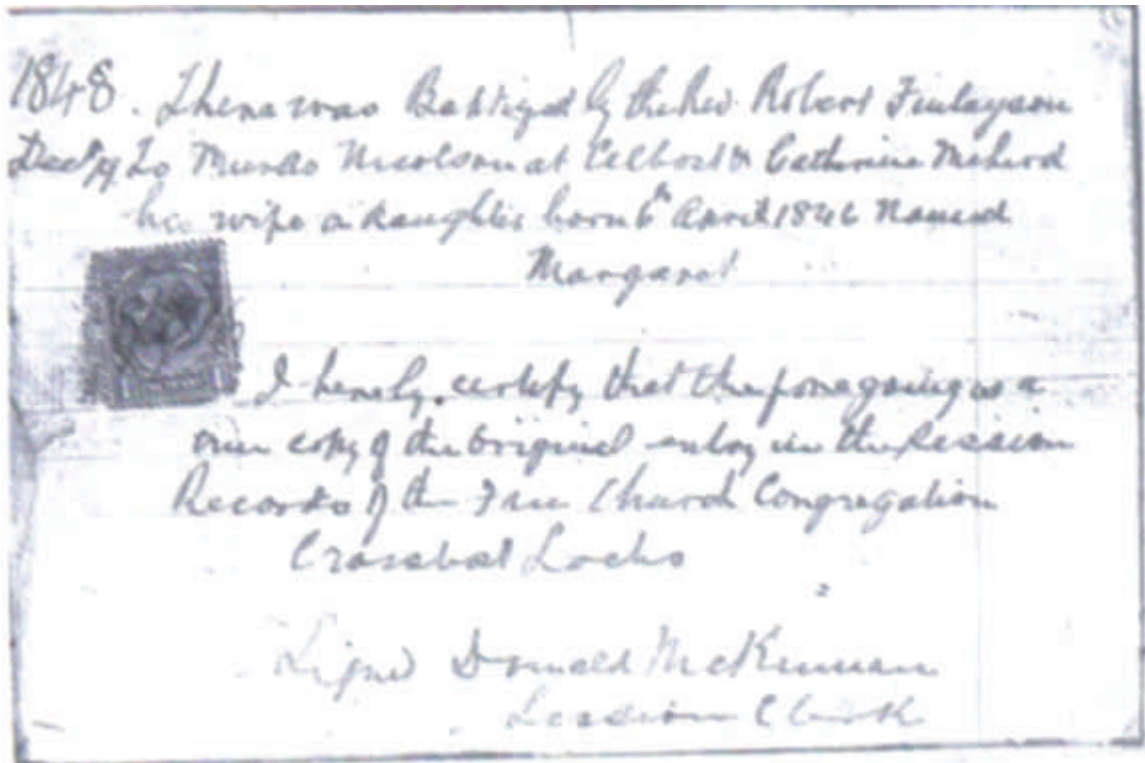 1848. There was Baptized by the Rev. Robert Finlayson
Decr 19 To Murdo Nicolson at Calbost & Catherine McLeod
his wife a daughter born 6th April 1846 Named
Margaret
I hereby certify that the foregoing is a
true copy of the Original entry in the Session
Records of the Free Church Congregation
Crossbost Lochs
Signed Donald McKinnon
Session Clerk